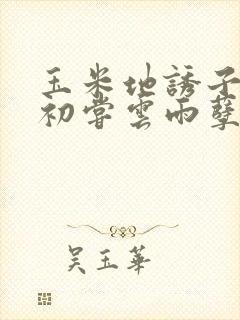 玉米地誘子
初嘗雲雨孽
吴玉華